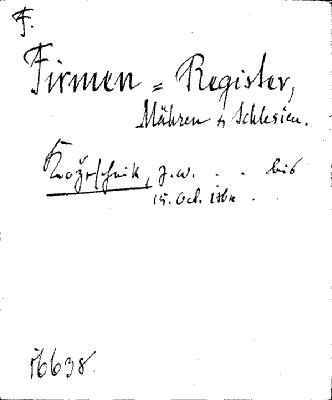 F.
Firmen = Register,
Mähren & Schlesien.
J. W. . . bis
15. Oct.
16638.